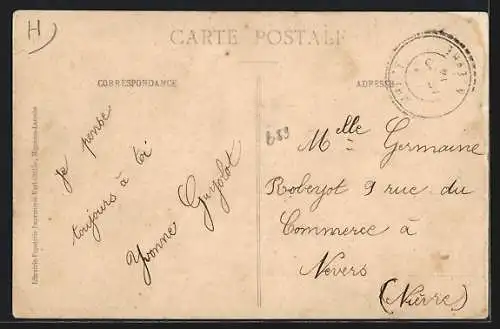 H
CARTE POSTALE
CORRESPONDANCE
ADRESSE
Je pense
toujours à toi
Yvonne Guyolot
B59
Melle Germaine
Roberjot 9 rue du
Commerce à
Nevers
(Nièvre)